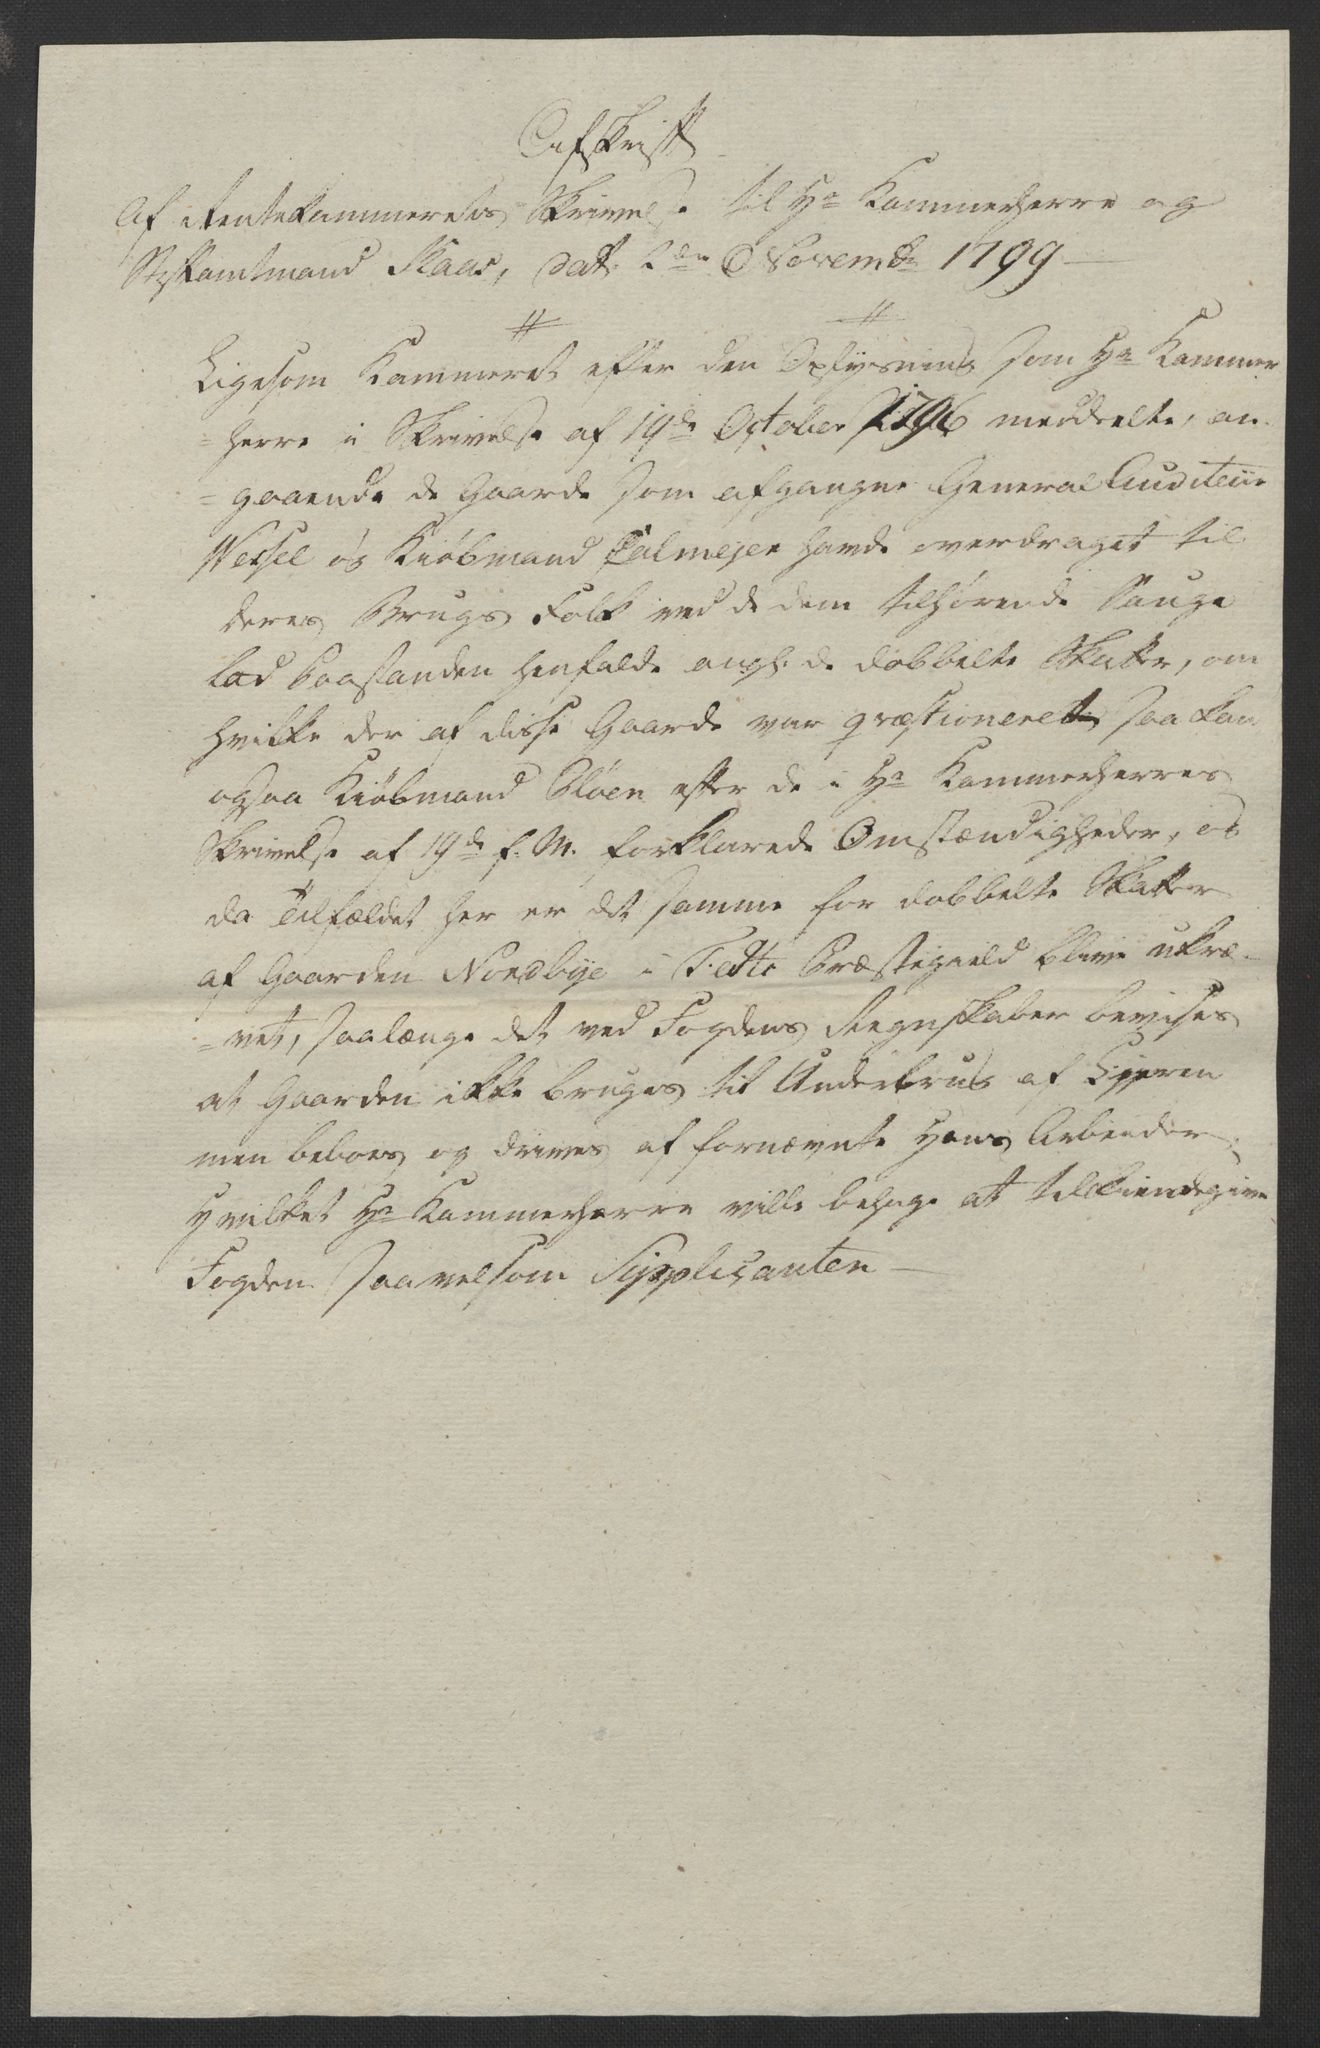 Afskrift
Af Rentekammerets Skrivelse til Hr Kammerherre og
Stiftamtmand Kaas, dat: 2den Novembr 1799 —
Ligesom Kammeret efter den Oplysning som Hr Kammer
= herre i Skrivelse af 19de October 1796 meddelte, an
= gaaende de Gaarde som afgangne General Auditeur
Wessel og Kiøbmand Talmejer havde overdraget til
deres Brugs Folk ved de dem tilhørende Sauge
lod Paastanden henfalde angl. de dobbelte Skatter, om
hvilke der af disse Gaarde var qvæstioneret, saa kan
ogsaa Kiøbmand Kløen efter de i Hr Kammerherres
Skrivelse af 19de f. M. forklarede Omstændigheder, og
da Tilfældet her er det samme for dobbelte Skatter
af Gaarden Nordbye i Fedtz Præstegield blive ukræ-
= vet, saalænge det ved Fogdens Regnskaber bevises
at Gaarden ikke bruges til Underbrug af Eyeren
men beboes og drives af fornævnte Hans Arbeider,
hvilket Hr Kammerherre ville behage at tilkiendegive
Fogden saavelsom Supplicanten —